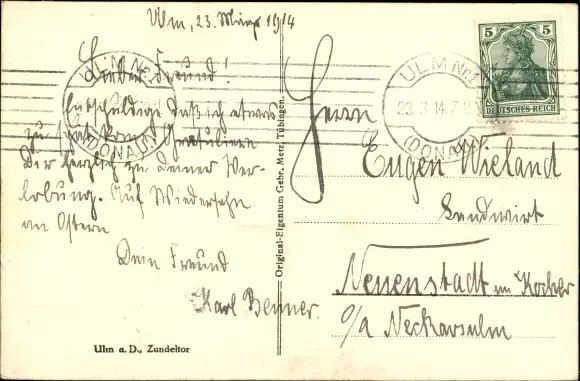 Ulm, 23. März 1914
Lieber Freund!
Entschuldige daß ich etwas
zu spät kom. Gratuliere
Dir herzlich zu deiner Ver-
lobung. Auf Wiedersehn
an Ostern
Dein Freund
Karl Benner.
Ulm a. D., Zundeltor
Original-Eigentum Gebr. Metz, Tübingen.
ULM Nr.
(DONAU)
ULM Nr.1
23.3.14.7-8
(DONAU)
5 5
DEUTSCHES REICH
Herrn
Eugen Wieland
Landwirt
Neuenstadt am Kocher
o/a Neckarsulm